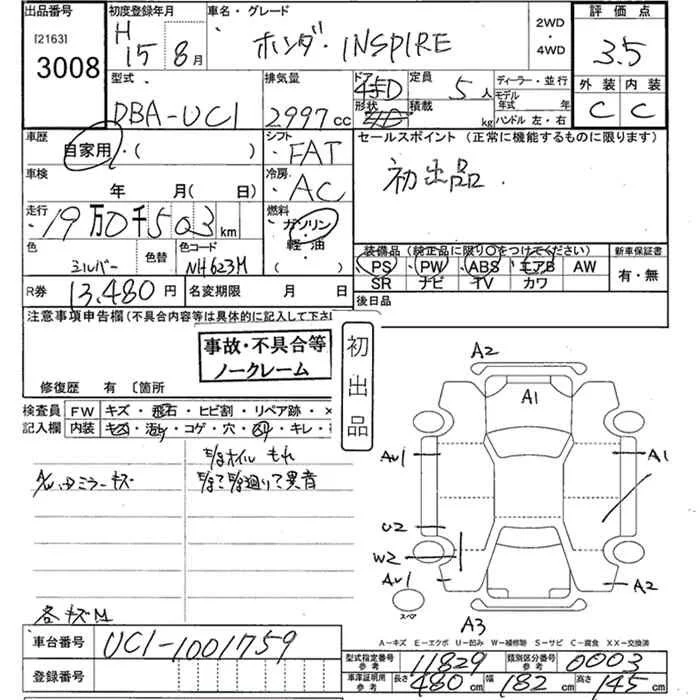 出品番号 初度登録年月 車名・グレード 2WD・4WD 評価点
[2163] 3008 H15 8月 ホンダ・INSPIRE 3.5
外装 内装
C C
型式 排気量 ドア 定員 ディーラー・並行
DBA-UC1 2997cc 4D 5人 モデル年式 年
形状 積載 kg ハンドル 左・右
車歴 シフト セールスポイント(正常に機能するものに限ります)
自家用・( ) FAT 初出品.
車検 冷房
年 月( 日) AC
走行 燃料
19万0千503km ガソリン・軽油
色 色替 色コード ( )
シルバー NH623M
装備品(純正品に限り○をつけてください) 新車保証書
PS PW ABS エアB AW 有・無
SR ナビ TV カワ
R券 13,480円 名変期限 月 日 後日品
注意事項申告欄(不具合内容等は具体的に記入して下さ
事故・不具合等
ノークレーム
初出品
修復歴 有 〔箇所
検査員 FW キズ・飛石・ヒビ割・リペア跡・×
記入欄 内装 キズ・汚れ・コゲ・穴・スリ・キレ・
ホイル もれ
ミラーキズ 廻りて異音
各キズM
A2
A1
A1
U2
W2
A2
スペア
A3
A-キズ E-エクボ U-凹み W-補修跡 S-サビ C-腐食 XX-交換済
車台番号 UC1-1001759
登録番号
型式指定番号 参考 11829 類別区分番号 参考 0003
車庫証明用 参考 長さ 480cm 幅 182cm 高さ 145cm